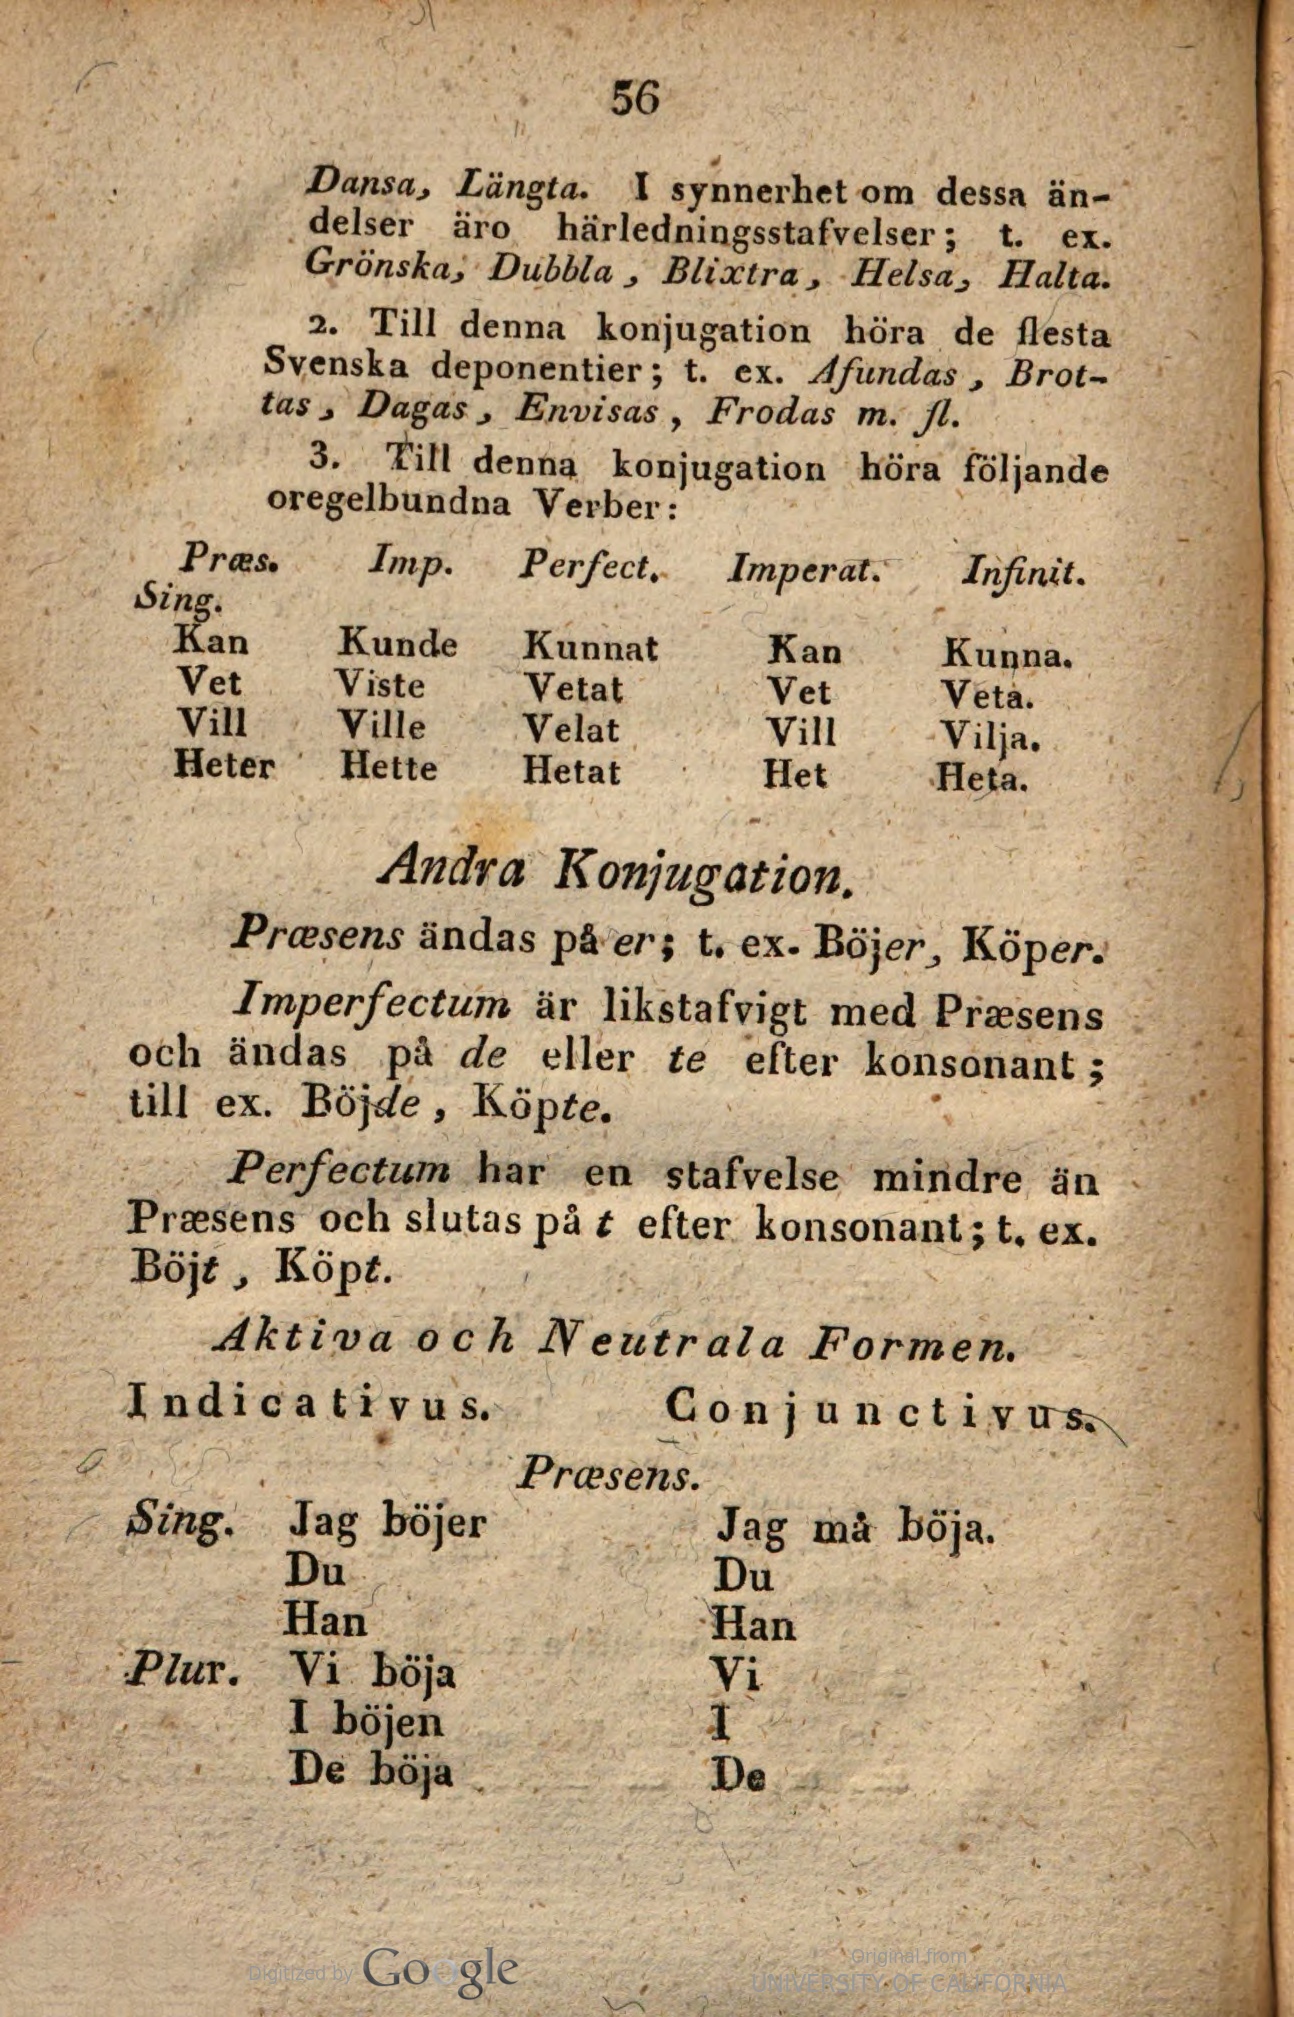 56
Dansa, Längta. I synnerhet om dessa än-
delser äro härledningsstafvelser; t. ex.
Grönska, Dubbla, Blixtra, Helsa, Halta.
2. Till denna konjugation höra de flesta
Svenska deponentier; t. ex. Afundas, Brot-
tas, Dagas, Envisas, Frodas m. fl.
3. Till denna konjugation höra följande
oregelbundna Verber:
Præs. Imp. Perfect. Imperat. Infinit.
Sing.
Kan Kunde Kunnat Kan Kunna.
Vet Viste Vetat Vet Veta.
Vill Ville Velat Vill Vilja.
Heter Hette Hetat Het Heta.
Andra Konjugation.
Præsens ändas på er; t. ex. Böjer, Köper.
Imperfectum är likstafvigt med Præsens
och ändas på de eller te efter konsonant;
till ex. Böjde, Köpte.
Perfectum har en stafvelse mindre än
Præsens och slutas på t efter konsonant; t. ex.
Böjt, Köpt.
Aktiva och Neutrala Formen.
Indicativus. Conjunctivus.
Præsens.
Sing. Jag böjer Jag må böja.
Du Du
Han Han
Plur. Vi böja Vi
I böjen I
De böja De
Digitized by Google
Original from
UNIVERSITY OF CALIFORNIA